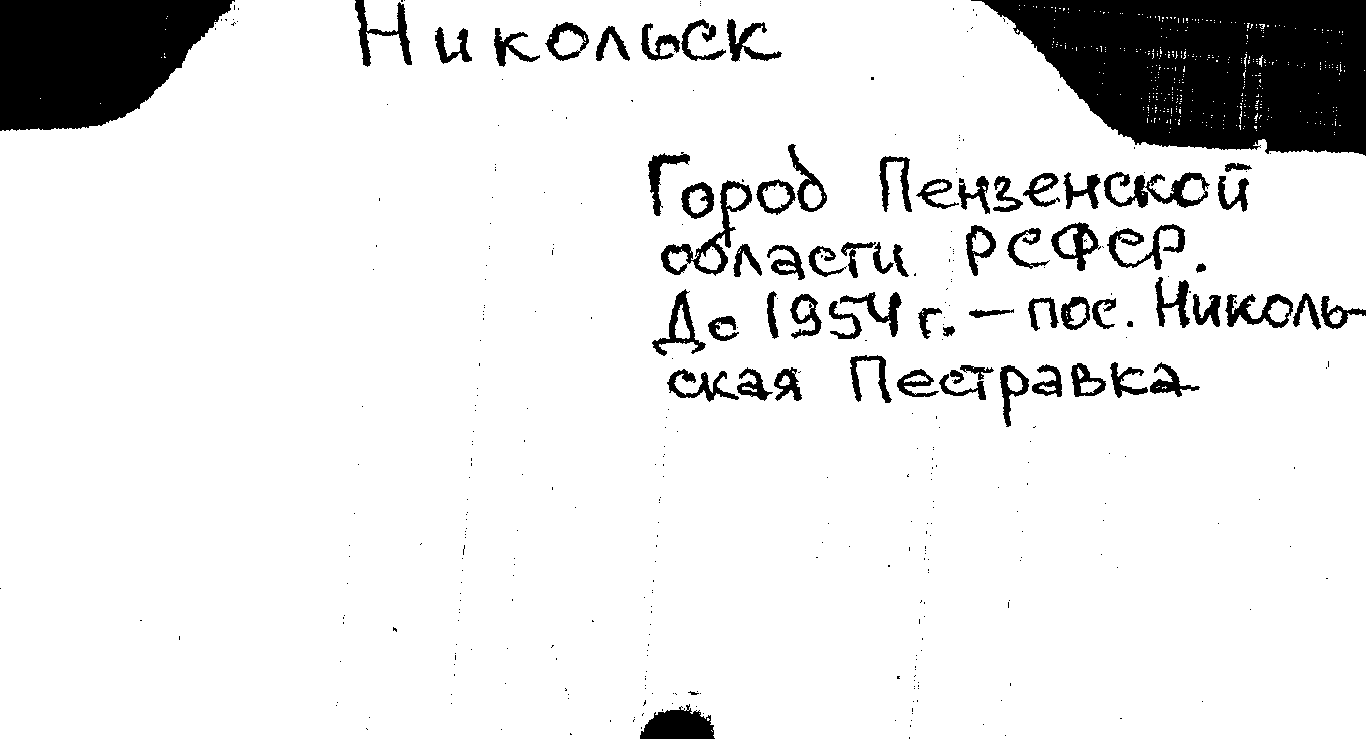 Никольск
Город Пензенской
области РСФСР.
До 1954 г. — пос. Николь-
ская Пестравка